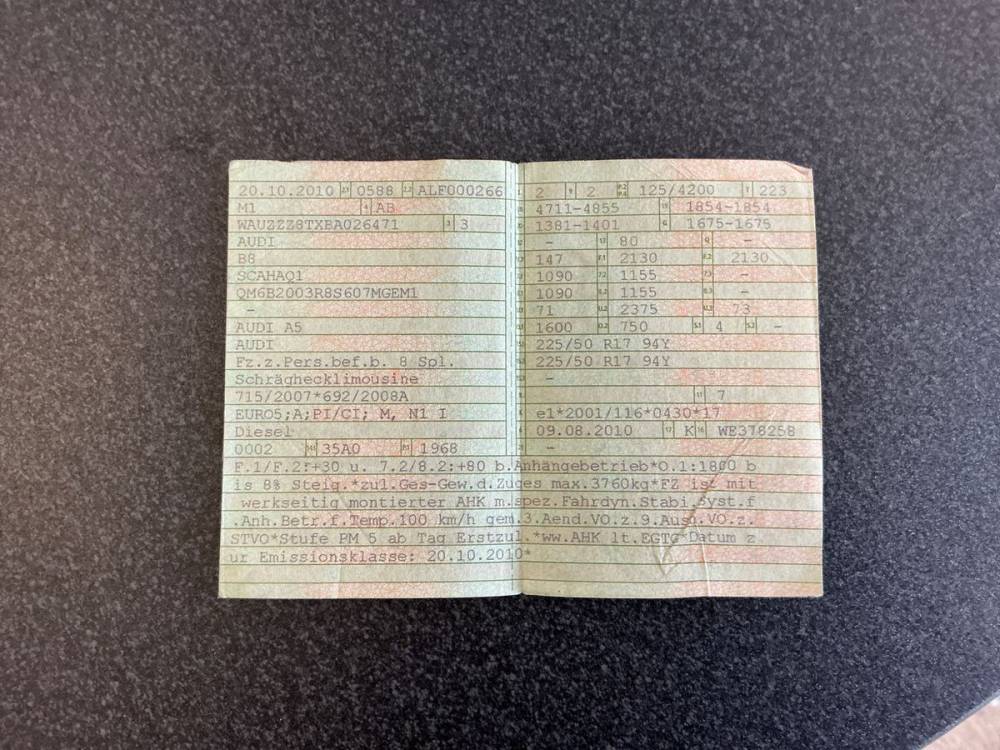 20.10.2010 0588 ALF000266
M1 AB
WAUZZZ8TXBA026471 3
AUDI
B8
SCAHAQ1
QM6B2003R8S607MGEM1
-
AUDI A5
AUDI
Fz.z.Pers.bef.b. 8 Spl.
Schräghecklimousine
715/2007*692/2008A
EURO5;A;PI/CI; M, N1 I
Diesel
0002 35A0 1968
2 2 125/4200 223
4711-4855 1854-1854
1381-1401 1675-1675
- 80 -
147 2130 2130
1090 1155 -
1090 1155 -
71 2375 73
1600 750 4 -
225/50 R17 94Y
225/50 R17 94Y
-
- 7
e1*2001/116*0430*17
09.08.2010 K WE378258
-
F.1/F.2:+30 u. 7.2/8.2:+80 b.Anhängebetrieb*O.1:1800 b
is 8% Steig.*zul.Ges-Gew.d.Zuges max.3760kg*FZ ist mit
werkseitig montierter AHK m.spez.Fahrdyn.Stabi.Syst.f
.Anh.Betr.f.Temp.100 km/h gem.3.Aend.VO.z.9.Ausn.VO.z.
STVO*Stufe PM 5 ab Tag Erstzul.*ww.AHK lt.EGTG*Datum z
ur Emissionsklasse: 20.10.2010*